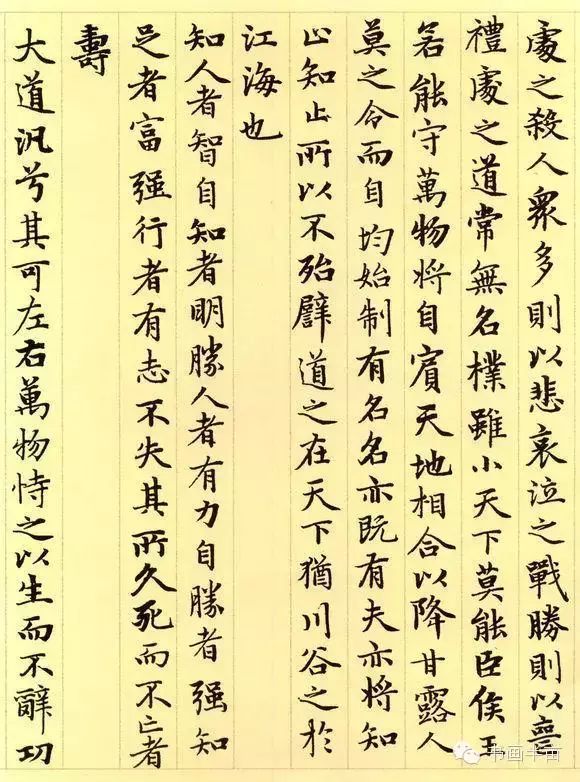 處之殺人眾多則以悲哀泣之戰勝則以喪
禮處之道常無名樸雖小天下莫能臣侯王
若能守萬物將自賓天地相合以降甘露人
莫之令而自均始制有名名亦既有夫亦將知
止知止所以不殆譬道之在天下猶川谷之於
江海也
知人者智自知者明勝人者有力自勝者强知
足者富强行者有志不失其所久死而不亡者
壽
大道汎兮其可左右萬物恃之以生而不辭功
书画千亩